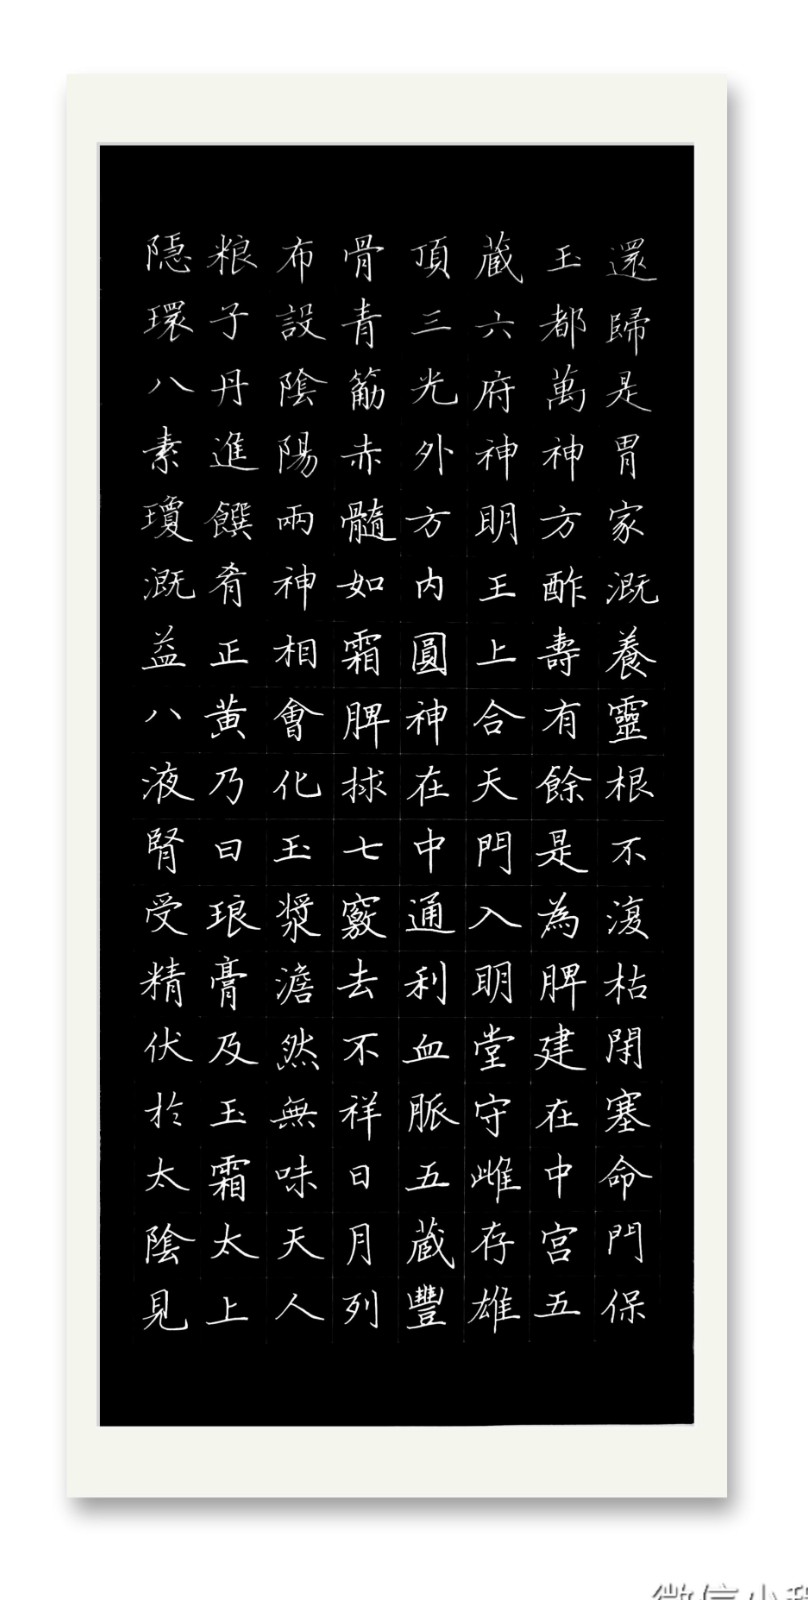 還歸是胃家溉養靈根不復枯閇塞命門保
玉都萬神方酢壽有餘是為脾建在中宮五
蔵六府神明王上合天門入明堂守雌存雄
頂三光外方內圓神在中通利血脈五蔵豐
骨青筋赤髓如霜脾捄七竅去不祥日月列
布設陰陽兩神相會化玉漿澹然無味天人
粮子丹進饌肴正黃乃曰琅膏及玉霜太上
隱環八素瓊溉益八液腎受精伏於太陰見
微信小程